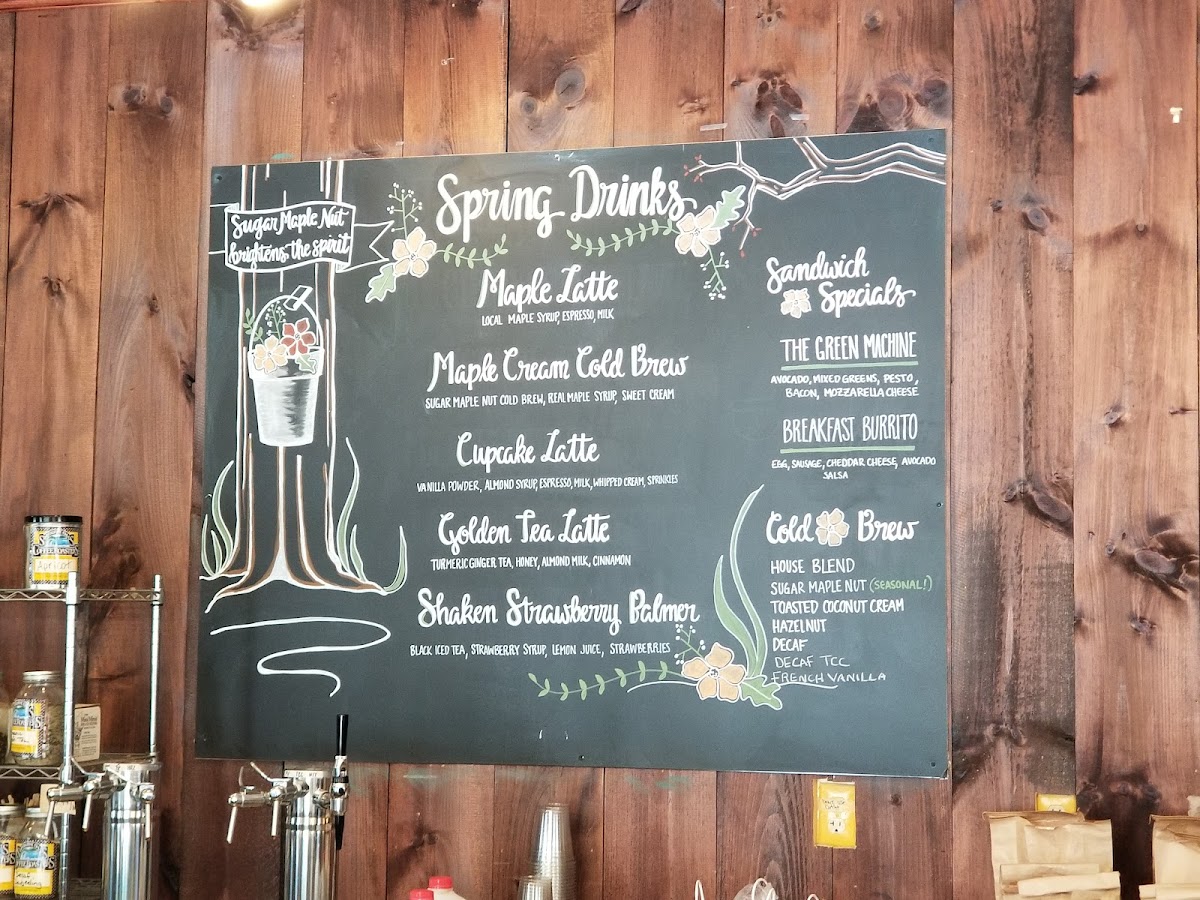 Sugar Maple Nut
brightens the spirit
Spring Drinks
Maple Latte
LOCAL MAPLE SYRUP, ESPRESSO, MILK
Maple Cream Cold Brew
SUGAR MAPLE NUT COLD BREW, REAL MAPLE SYRUP, SWEET CREAM
Cupcake Latte
VANILLA POWDER, ALMOND SYRUP, ESPRESSO, MILK, WHIPPED CREAM, SPRINKLES
Golden Tea Latte
TURMERIC GINGER TEA, HONEY, ALMOND MILK, CINNAMON
Shaken Strawberry Palmer
BLACK ICED TEA, STRAWBERRY SYRUP, LEMON JUICE, STRAWBERRIES
Sandwich
Specials
THE GREEN MACHINE
AVOCADO, MIXED GREENS, PESTO,
BACON, MOZZARELLA CHEESE
BREAKFAST BURRITO
EGG, SAUSAGE, CHEDDAR CHEESE, AVOCADO
SALSA
Cold Brew
HOUSE BLEND
SUGAR MAPLE NUT (SEASONAL!)
TOASTED COCONUT CREAM
HAZELNUT
DECAF
DECAF TCC
FRENCH VANILLA
COFFEE ROASTERS
Apricot